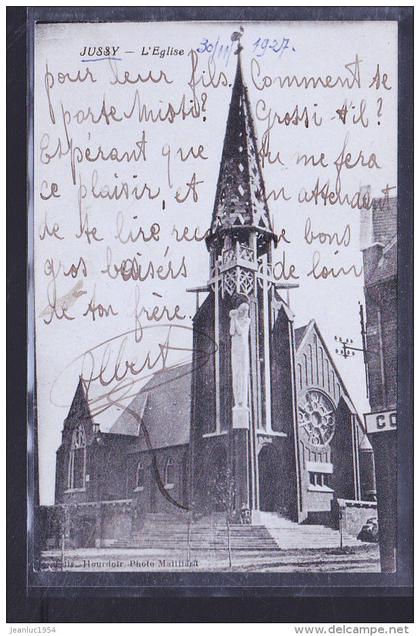 JUSSY — L'Eglise 30/11 1927.
pour leur fils. Comment se
porte Misti? Grossi-t'il?
Espérant que tu me fera
ce plaisir, et en attendant
de te lire recoi de bons
gros baisers de loin
de ton frère.
Albert
Hourdoir Photo Mailliard
jeanluc1954
http://jeanluc1954.delcampe.net